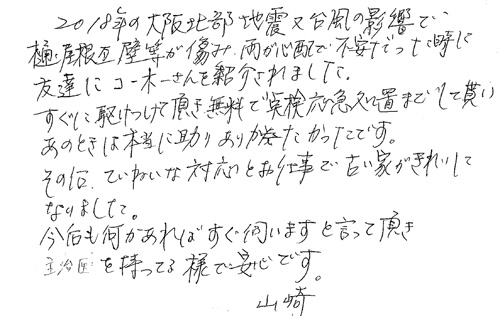 2018年の大阪北部地震又台風の影響で、
樋、屋根瓦壁等が傷み、雨が心配で不安だった時に
友達にコーキーさんを紹介されました。
すぐに駆けつけて頂き無料で点検応急処置までして貰い
あのときは本当に助かりありがたかったです。
その后、ていねいな対応とお仕事で古い家がきれいに
なりました。
今后も何かあればすぐ伺いますと言って頂き
主治医を持ってる様で安心です。
山崎